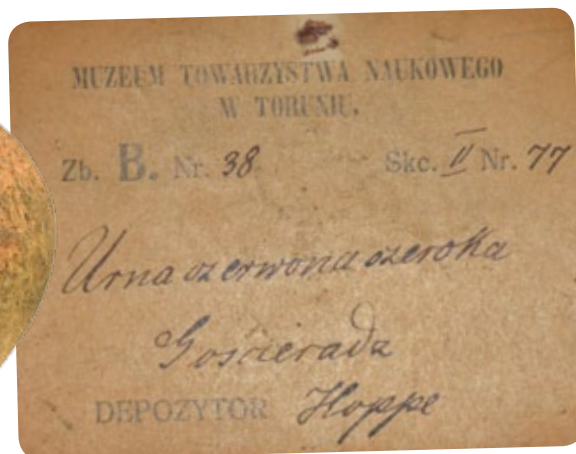 MUZEUM TOWARZYSTWA NAUKOWEGO
W TORUNIU.
Zb. B. Nr. 38 Skc. II Nr. 77
Urna czerwona szeroka
Gościeradz
DEPOZYTOR Hoppe